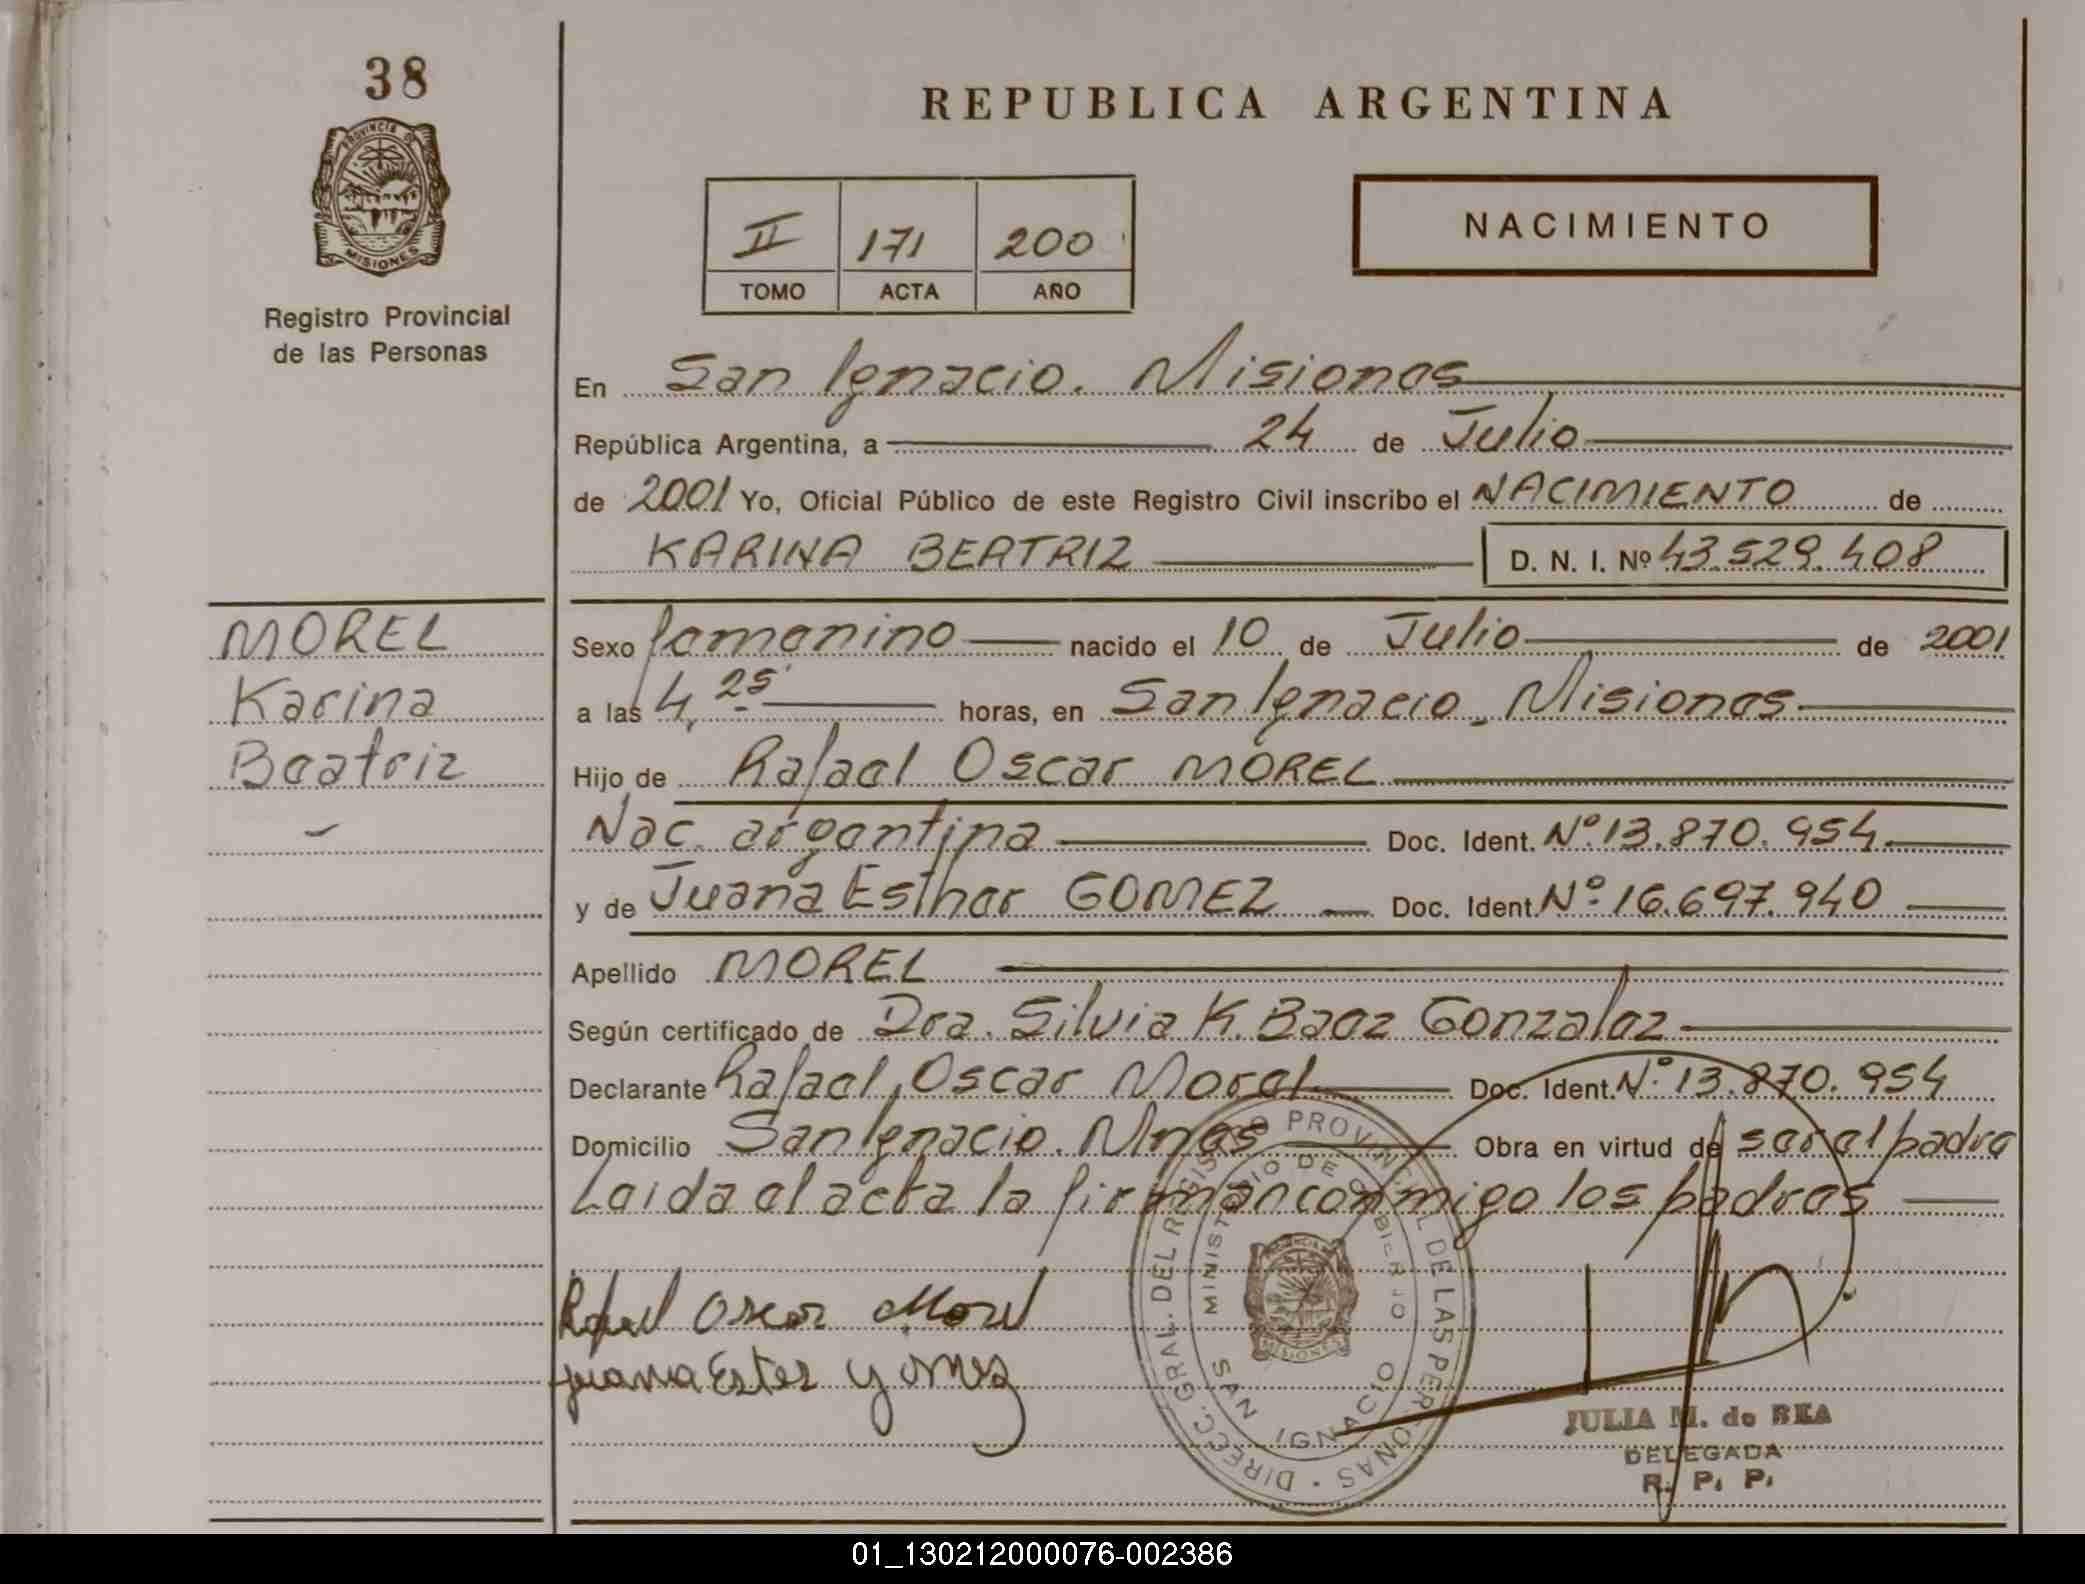 38
PROVINCIA DE
MISIONES
Registro Provincial
de las Personas
REPUBLICA ARGENTINA
II 171 200
TOMO ACTA AÑO
NACIMIENTO
En San Ignacio. Misiones
República Argentina, a 24 de Julio
de 2001 Yo, Oficial Público de este Registro Civil inscribo el NACIMIENTO de
KARINA BEATRIZ D. N. I. Nº 43.529.408
MOREL
Karina
Beatriz
Sexo femenino nacido el 10 de Julio de 2001
a las 4,25 horas, en San Ignacio. Misiones
Hijo de Rafael Oscar MOREL
Nac. argentina Doc. Ident. Nº 13.870.954
y de Juana Esther GOMEZ Doc. Ident. Nº 16.697.940
Apellido MOREL
Según certificado de Dra. Silvia K. Baez Gonzalez
Declarante Rafael Oscar Morel Doc. Ident. Nº 13.870.954
Domicilio San Ignacio. Mnes Obra en virtud de ser el padre
Leida el acta la firman conmigo los padres
Rafael Oscar Morel
juana Ester gomez
DIRECC. GRAL. DEL REGISTRO PROVINCIAL DE LAS PERSONAS
MINISTERIO DE GOBIERNO
SAN IGNACIO
MISIONES
JULIA M. de BEA
DELEGADA
R. P. P.
01_130212000076-002386